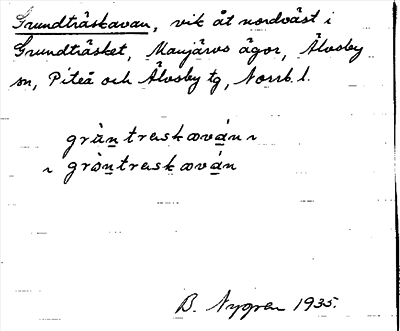 Grundträskavan, vik åt nordväst i
Grundträsket, Manjärvs ägor, Älvsby
sn, Piteå och Älvsby tg, Norrb. l.
gràntræskæván ~
~ gròntræskæván
B. Nygren 1935.